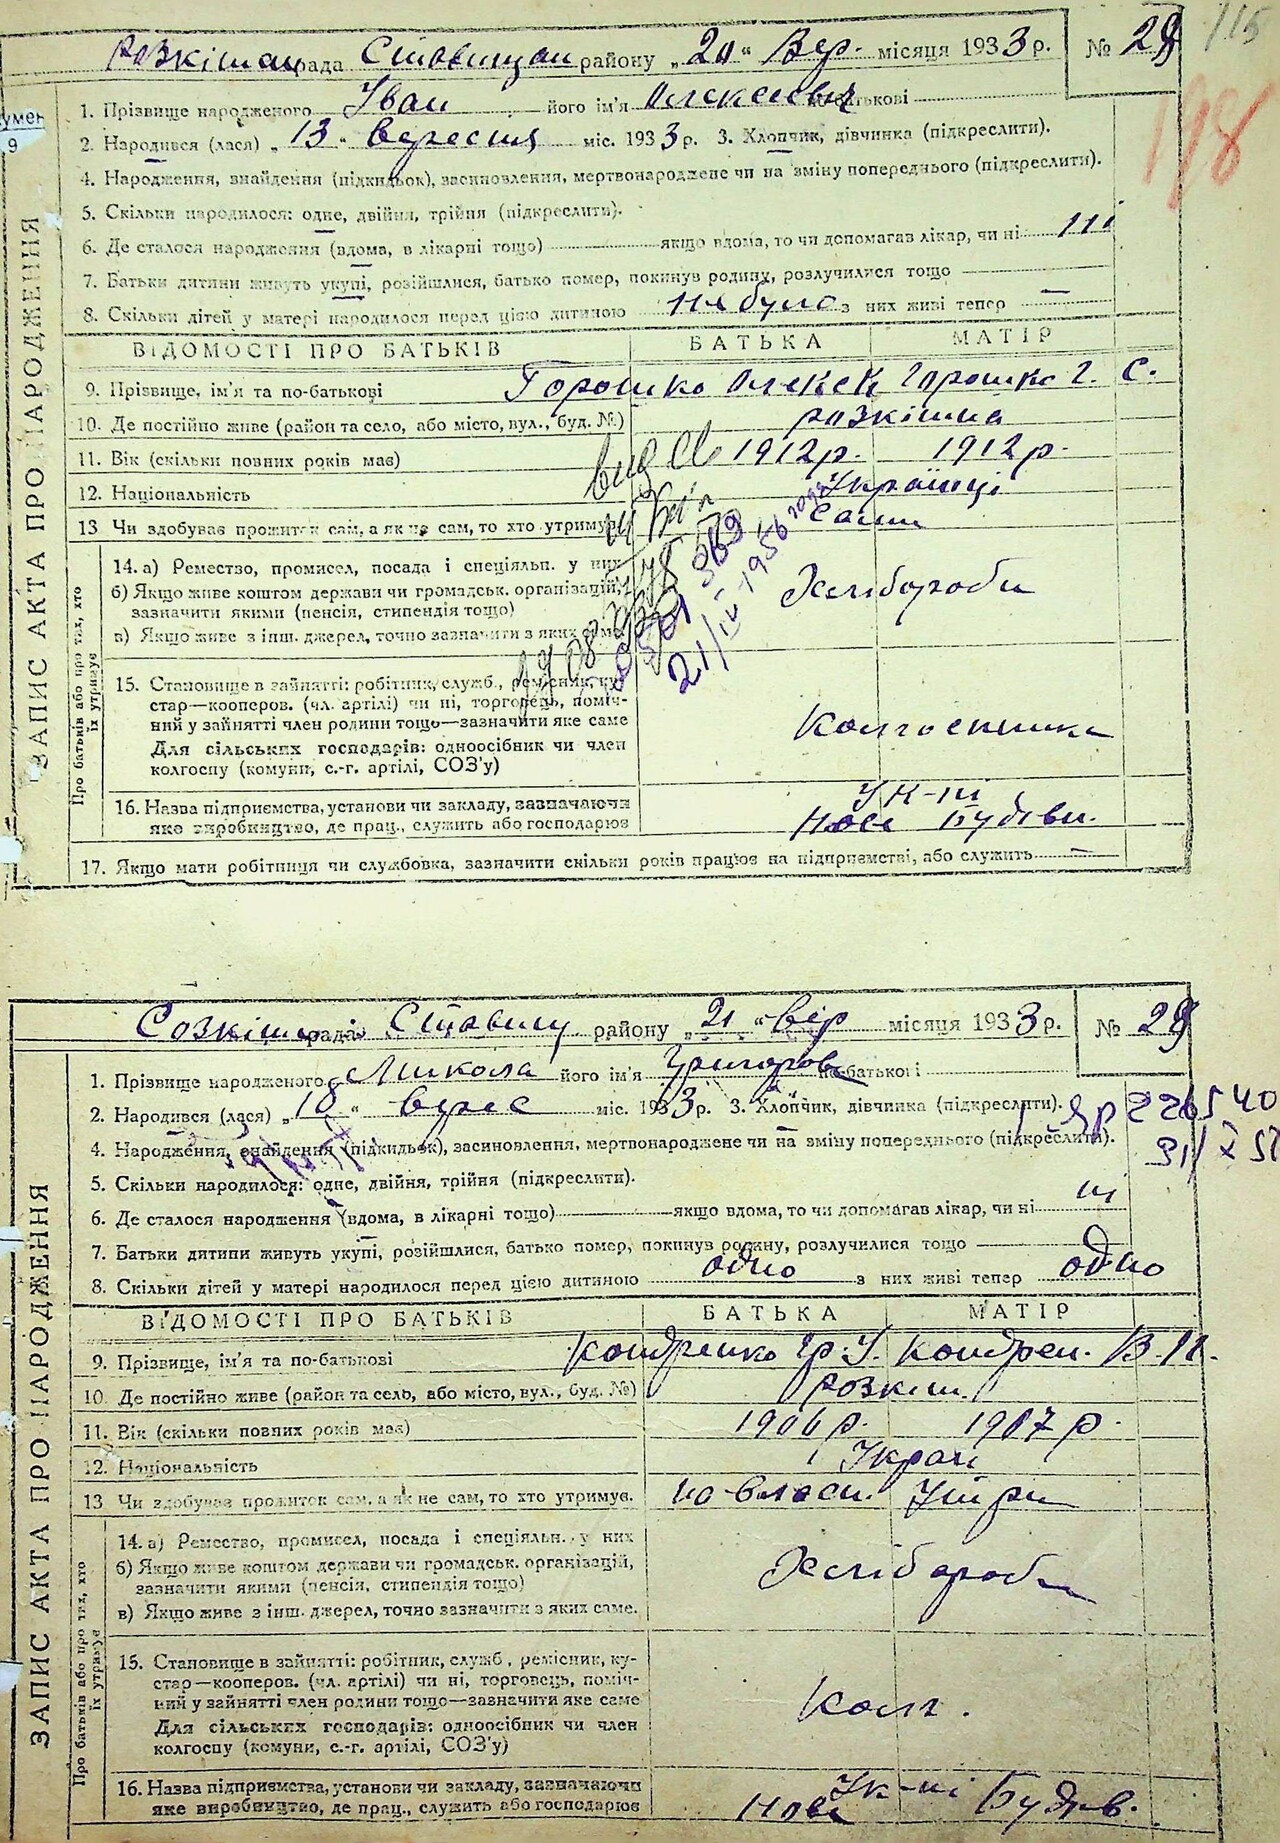 115
118
Розкішан рада Ставищан району „20“ Вер. місяця 1933 р. № 28
1. Прізвище народженого Іван його ім'я Олексієвич по-батькові
2. Народився (лася) „13“ вересня міс. 1933 р. 3. Хлопчик, дівчинка (підкреслити).
4. Народження, знайдення (підкидьок), засиновлення, мертвонароджене чи на зміну попереднього (підкреслити).
5. Скільки народилося: одне, двійня, трійня (підкреслити).
6. Де сталося народження (вдома, в лікарні тощо) якщо вдома, то чи допомагав лікар, чи ні ні
7. Батьки дитини живуть укупі, розійшлися, батько помер, покинув родину, розлучилися тощо
8. Скільки дітей у матері народилося перед цією дитиною не було з них живі тепер —
ЗАПИС АКТА ПРО НАРОДЖЕННЯ
ВІДОМОСТІ ПРО БАТЬКІВ БАТЬКА МАТІР
9. Прізвище, ім'я та по-батькові Горошко Олексій Горошко Г. С.
10. Де постійно живе (район та село, або місто, вул., буд. №) розкішна
11. Вік (скільки повних років має) 1912 р. 1912 р.
12. Національність Українці
13 Чи здобуває прожиток сам, а як не сам, то хто утримує. Сами
21/IV-1956 года
Про батьків або про тих, хто їх утримує
14. а) Ремество, промисел, посада і спеціяльн. у них Хлібороби
б) Якщо живе коштом держави чи громадськ. організацій, зазначити якими (пенсія, стипендія тощо)
в) Якщо живе з інш. джерел, точно зазначити з яких саме.
15. Становище в зайнятті: робітник, служб., ремісник, ку-
стар—кооперов. (чл. артілі) чи ні, торговець, поміч-
ний у зайнятті член родини тощо—зазначити яке саме
Для сільських господарів: одноосібник чи член
колгоспу (комуни, с.-г. артілі, СОЗ'у)
Колгоспники
16. Назва підприємства, установи чи закладу, зазначаючи
яке виробництво, де прац., служить або господарює
Ук-ні
Нове Будівн.
17. Якщо мати робітниця чи службовка, зазначити скільки років працює на підприємстві, або служить —
Розкішн рада Ставищ району „21“ вер місяця 1933 р. № 29
1. Прізвище народженого Микола його ім'я Григоров по-батькові
2. Народився (лася) „18“ верес міс. 1933 р. 3. Хлопчик, дівчинка (підкреслити).
4. Народження, знайдення (підкидьок), засиновлення, мертвонароджене чи на зміну попереднього (підкреслити).
5. Скільки народилося: одне, двійня, трійня (підкреслити).
6. Де сталося народження (вдома, в лікарні тощо) якщо вдома, то чи допомагав лікар, чи ні ні
7. Батьки дитини живуть укупі, розійшлися, батько помер, покинув родину, розлучилися тощо
8. Скільки дітей у матері народилося перед цією дитиною одно з них живі тепер одно
ЗАПИС АКТА ПРО НАРОДЖЕННЯ
ВІДОМОСТІ ПРО БАТЬКІВ БАТЬКА МАТІР
9. Прізвище, ім'я та по-батькові Кондренко Гр. У. Кондрен. В. П.
10. Де постійно живе (район та село, або місто, вул., буд. №) розкіш.
11. Вік (скільки повних років має) 1906 р. 1907 р.
12. Національність Украї
13 Чи здобуває прожиток сам, а як не сам, то хто утримує.
Про батьків або про тих, хто їх утримує
14. а) Ремество, промисел, посада і спеціяльн. у них
б) Якщо живе коштом держави чи громадськ. організацій, зазначити якими (пенсія, стипендія тощо)
в) Якщо живе з інш. джерел, точно зазначити з яких саме.
Хлібороби
15. Становище в зайнятті: робітник, служб., ремісник, ку-
стар—кооперов. (чл. артілі) чи ні, торговець, поміч-
ний у зайнятті член родини тощо—зазначити яке саме
Для сільських господарів: одноосібник чи член
колгоспу (комуни, с.-г. артілі, СОЗ'у)
Колг.
16. Назва підприємства, установи чи закладу, зазначаючи
яке виробництво, де прац., служить або господарює
Ук-ні
Нове Будів.